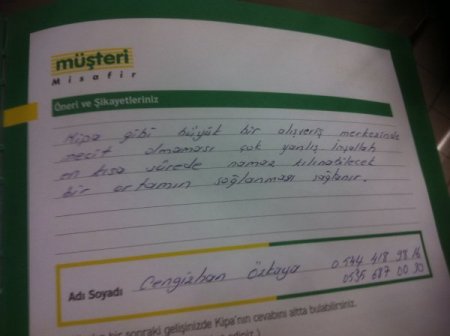 müşteri
Misafir
Öneri ve Şikayetleriniz
Kipa gibi büyük bir alışveriş merkezinde
mecit olmaması çok yanlış İnşallah
en kısa sürede namaz kılınabilecek
bir ortamın sağlanması sağlanır.
Adı Soyadı Cengizhan Özkaya 0.544 418 98 16
0535 687 00 30
bir sonraki gelişinizde Kipa'nın cevabını altta bulabilirsiniz.